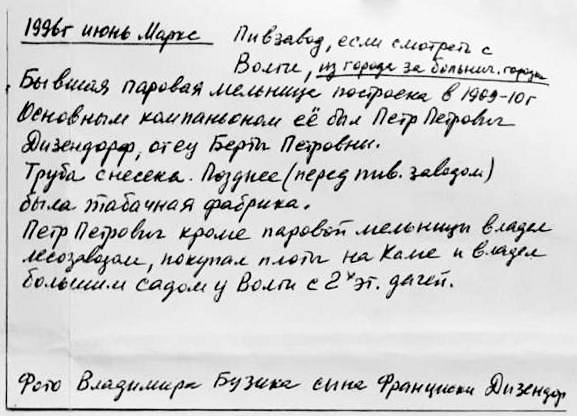 1996г июнь Маркс Пивзавод, если смотреть с
Волги, из города за больнич. город
Бывшая паровая мельница построена в 1909-10г
Основным компаньоном её был Петр Петрович
Дизендорф, отец Берты Петровны.
Труба снесена. Позднее (перед пив. заводом)
была табачная фабрика.
Петр Петрович кроме паровой мельницы владел
лесозаводом, покупал плоты на Каме и владел
большим садом у Волги с 2х эт. дачей.
Фото Владимира Бузика сына Франциски Дизендор